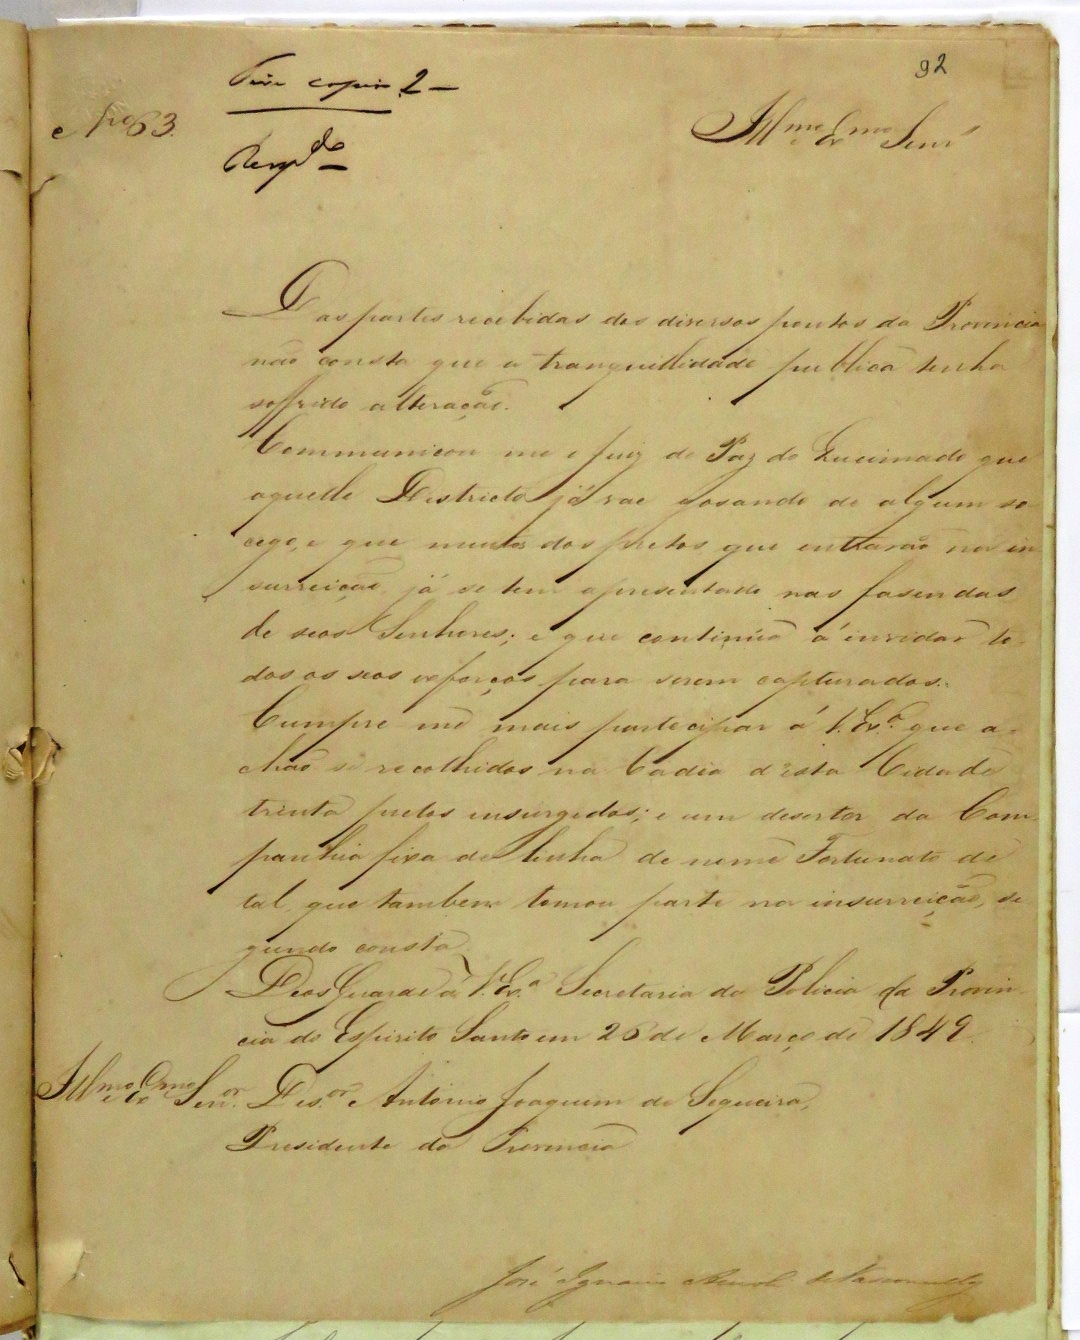 92
Tire copia 2 —
Nº 63.
Resp.do
Illmo e Exmo Senr
Das partes recebidas dos diversos pontos da Provincia
não consta que a tranquillidade publica tenha
soffrido alteração.
Communicou me o Juiz de Paz do Queimado que
aquelle Districto já vae gosando de algum so
cego, e que muitos dos pretos que entrarão na in
surreição, já se tem apresentado nas fasendas
de seos Senhores; e que continúa á invidar to-
dos os seos exforços para serem capturados.
Cumpre-me mais partecipar á V. Exª que a-
chão se recolhidos na Cadia d'esta Cidade
trinta pretos insurgidos; e um desertor da Com-
panhia fixa de linha de nome Fortunato de
tal, que tambem tomou parte na insurreição, se
gundo consta.
Deos Guarde á V. Exª Secretaria da Policia da Provin-
cia do Espirito Santo em 26 de Março de 1849.
Illmo e Exmo Senor. Des.or Antonio Joaquim de Sequeira,
Presidente da Provincia
José Ignacio de Vasconcellos